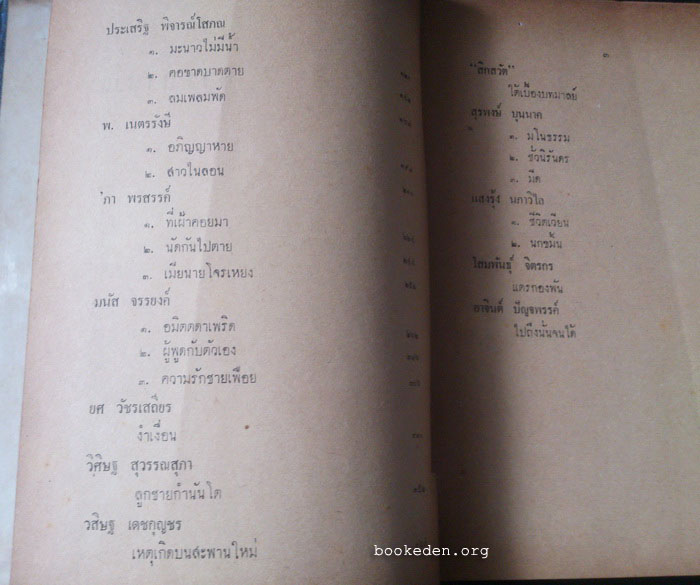 ประเสริฐ พิจารณ์โสภณ
๑. มะนาวไม่มีน้ำ
๒. คอขาดบาดตาย
๓. ลมเพลมพัด
พ. เนตรรังษี
๑. อภิญญาหาย
๒. สาวไนลอน
'ภา พรสรรค์
๑. ที่เฝ้าคอยมา
๒. นัดกันไปตาย
๓. เมียนายโจรเหยง
มนัส จรรยงค์
๑. อมิตตดาเพริด
๒. ผู้พูดกับตัวเอง
๓. ความรักชายเฟือย
ยศ วัชรเสถียร
งำเงื่อน
วิศิษฐ สุวรรณสุภา
ลูกชายกำนันโต
วสิษฐ เดชกุญชร
เหตุเกิดบนสะพานใหม่
๓
"ลิกสวัด"
ใต้เบื้องบทมาลย์
สุรพงษ์ บุนนาค
๑. มโนธรรม
๒. ชั่วนิรันดร
๓. มืด
แสงรุ้ง นภาวิไล
๑. ชีวิตเวียน
๒. นกขมิ้น
โสมพันธุ์ จิตรกร
แตรกองพัน
อาจินต์ ปัญจพรรค์
ไปถึงนั่นจนได้
bookeden.org